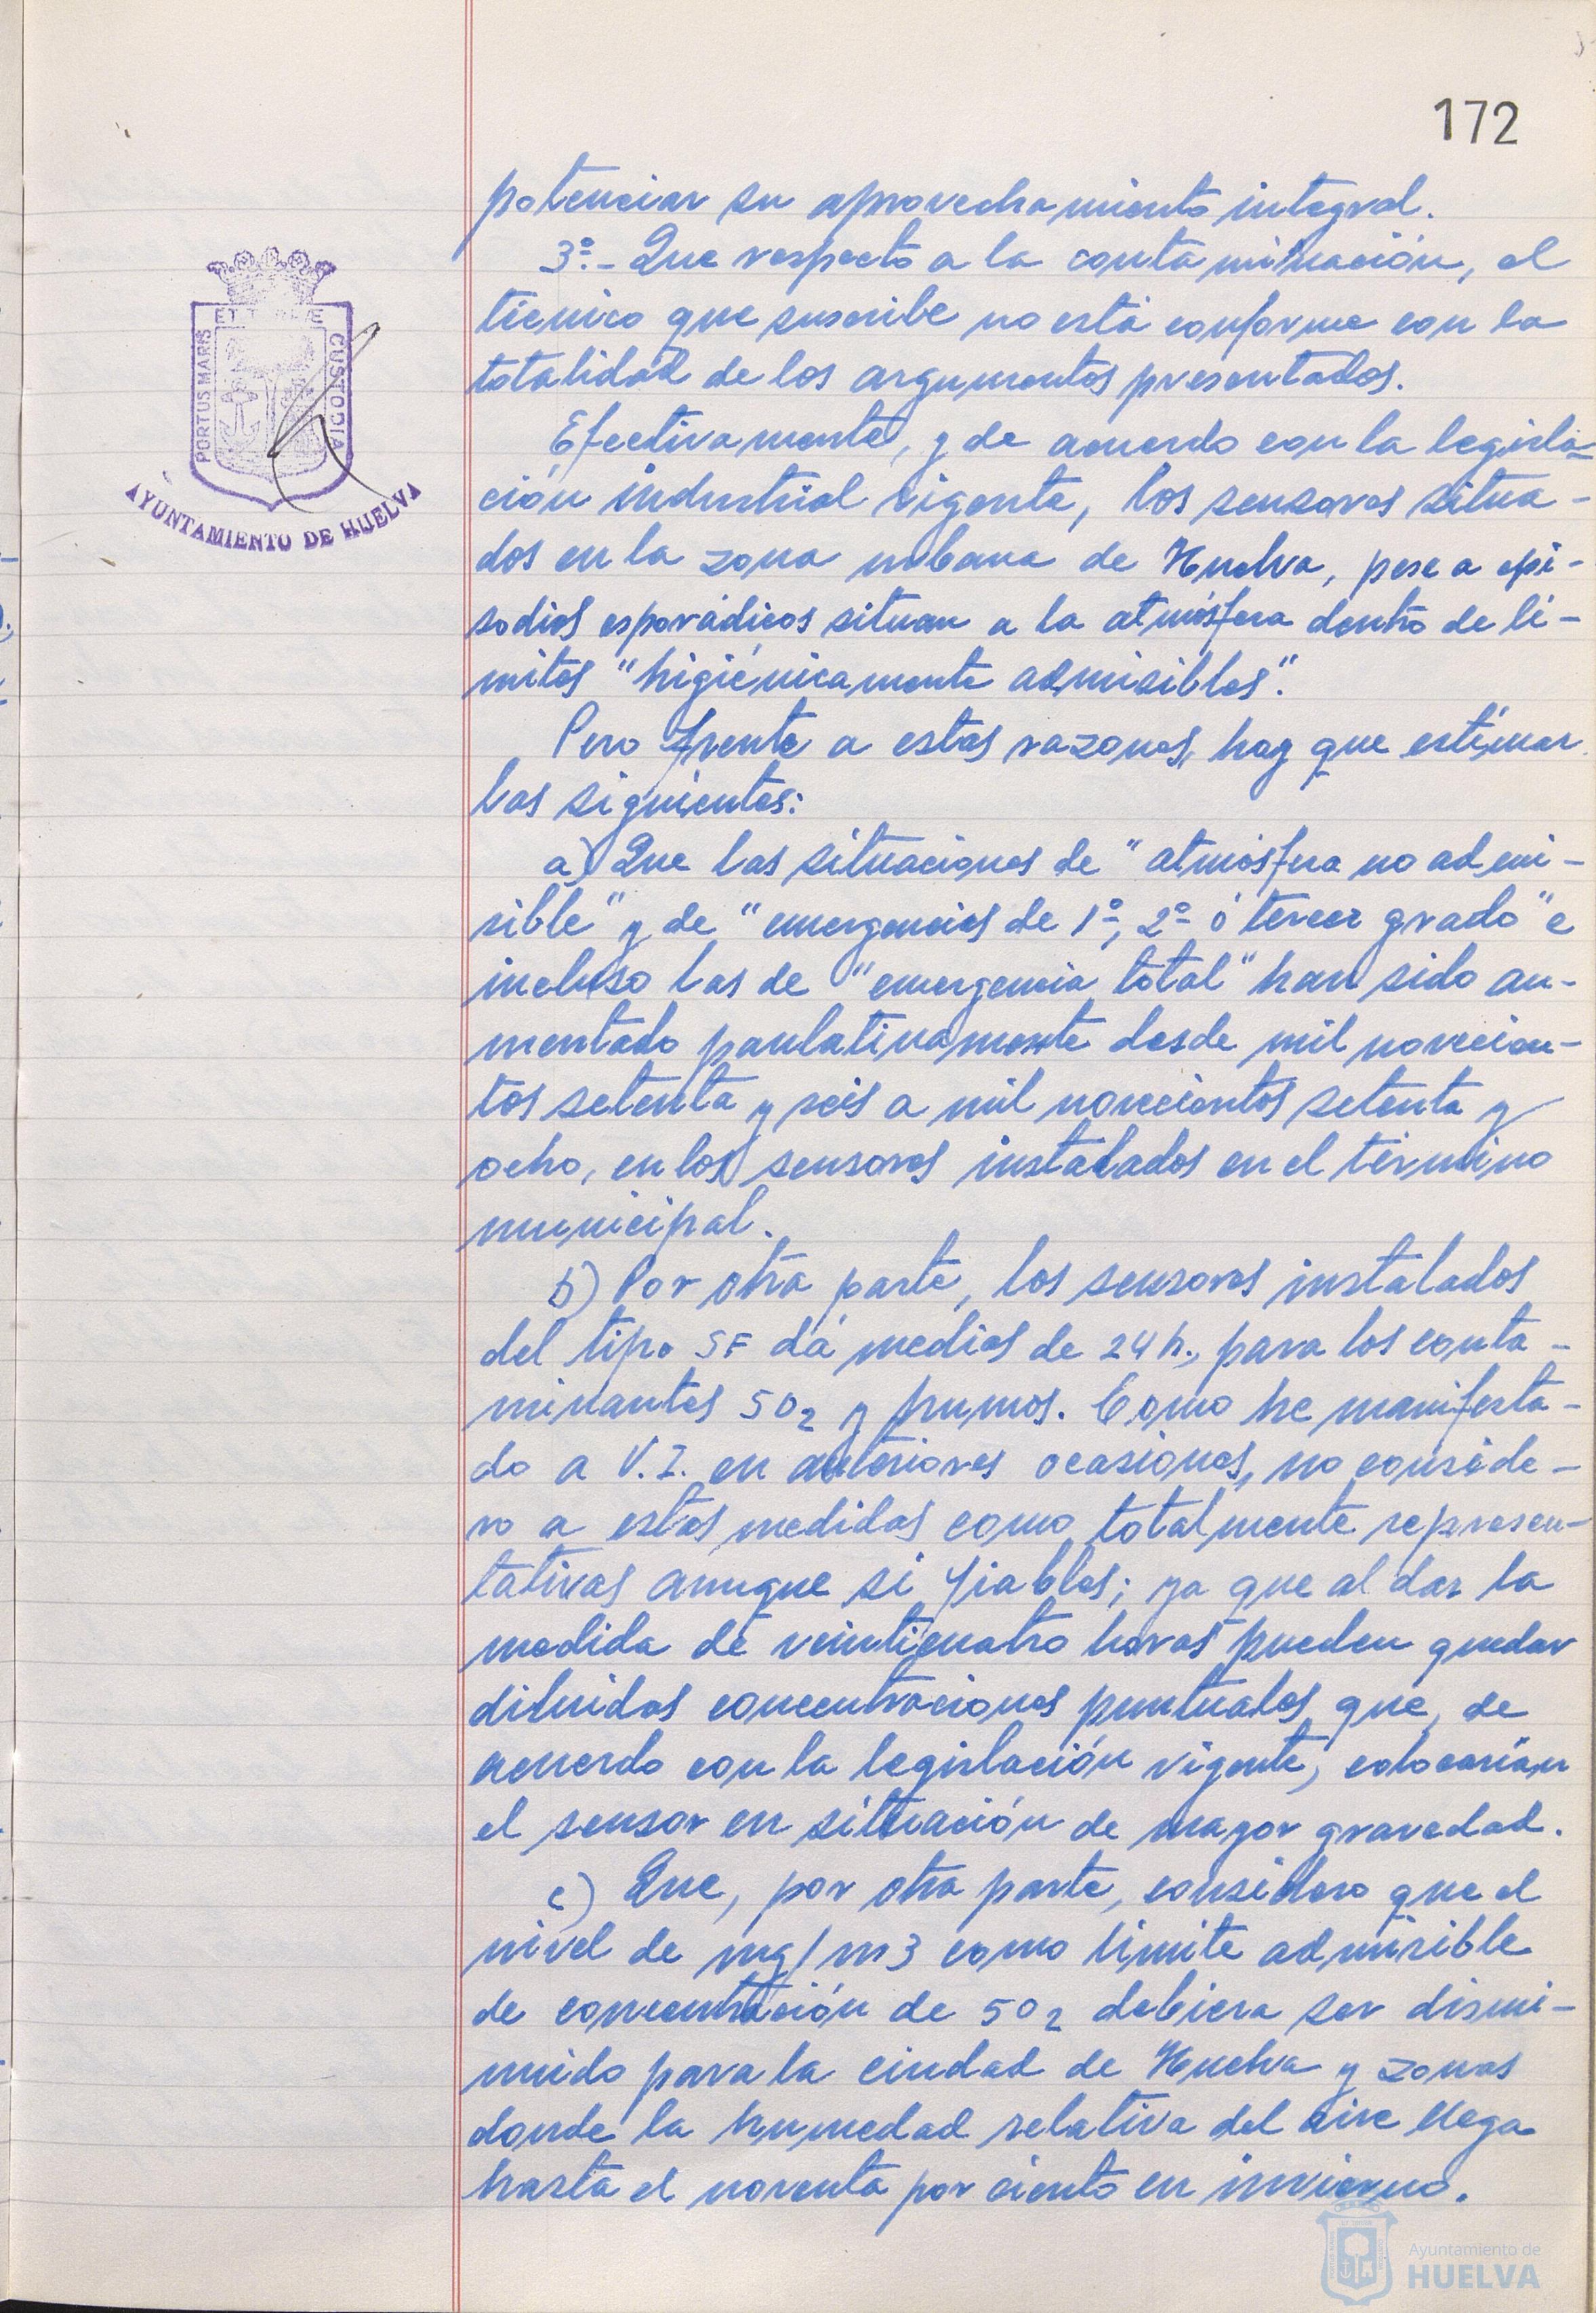 172
potenciar su aprovechamiento integral.
3º.- Que respecto a la contaminación, el
técnico que suscribe no está conforme con la
totalidad de los argumentos presentados.
Efectivamente, y de acuerdo con la legisla-
ción industrial vigente, los sensores situa-
dos en la zona urbana de Huelva, pese a epi-
sodios esporádicos situan a la atmósfera dentro de lí-
mites "higiénicamente admisibles".
Pero frente a estas razones, hay que estimar
las siguientes:
a) Que las situaciones de "atmósfera no admi-
sible" y de "emergencias de 1º, 2º ó tercer grado" e
incluso las de "emergencia total" han sido au-
mentado paulatinamente desde mil novecien-
tos setenta y seis a mil novecientos setenta y
ocho, en los sensores instalados en el término
municipal.
b) Por otra parte, los sensores instalados
del tipo SF dá medias de 24 h., para los conta-
minantes SO2 y humos. Como he manifesta-
do a V.I. en anteriores ocasiones, no conside-
ro a estas medidas como totalmente represen-
tativas aunque si fiables; ya que al dar la
medida de veinticuatro horas pueden quedar
diluidas concentraciones puntuales que, de
acuerdo con la legislación vigente, colocarían
el sensor en situación de mayor gravedad.
c) Que, por otra parte, considero que el
nivel de mg/m3 como límite admisible
de concentración de SO2 debiera ser dismi-
nuido para la ciudad de Huelva y zonas
donde la humedad relativa del aire llega
hasta el noventa por ciento en invierno.
PORTUS MARIS
ET TERRAE
CUSTODIA
AYUNTAMIENTO DE HUELVA
Ayuntamiento de
HUELVA